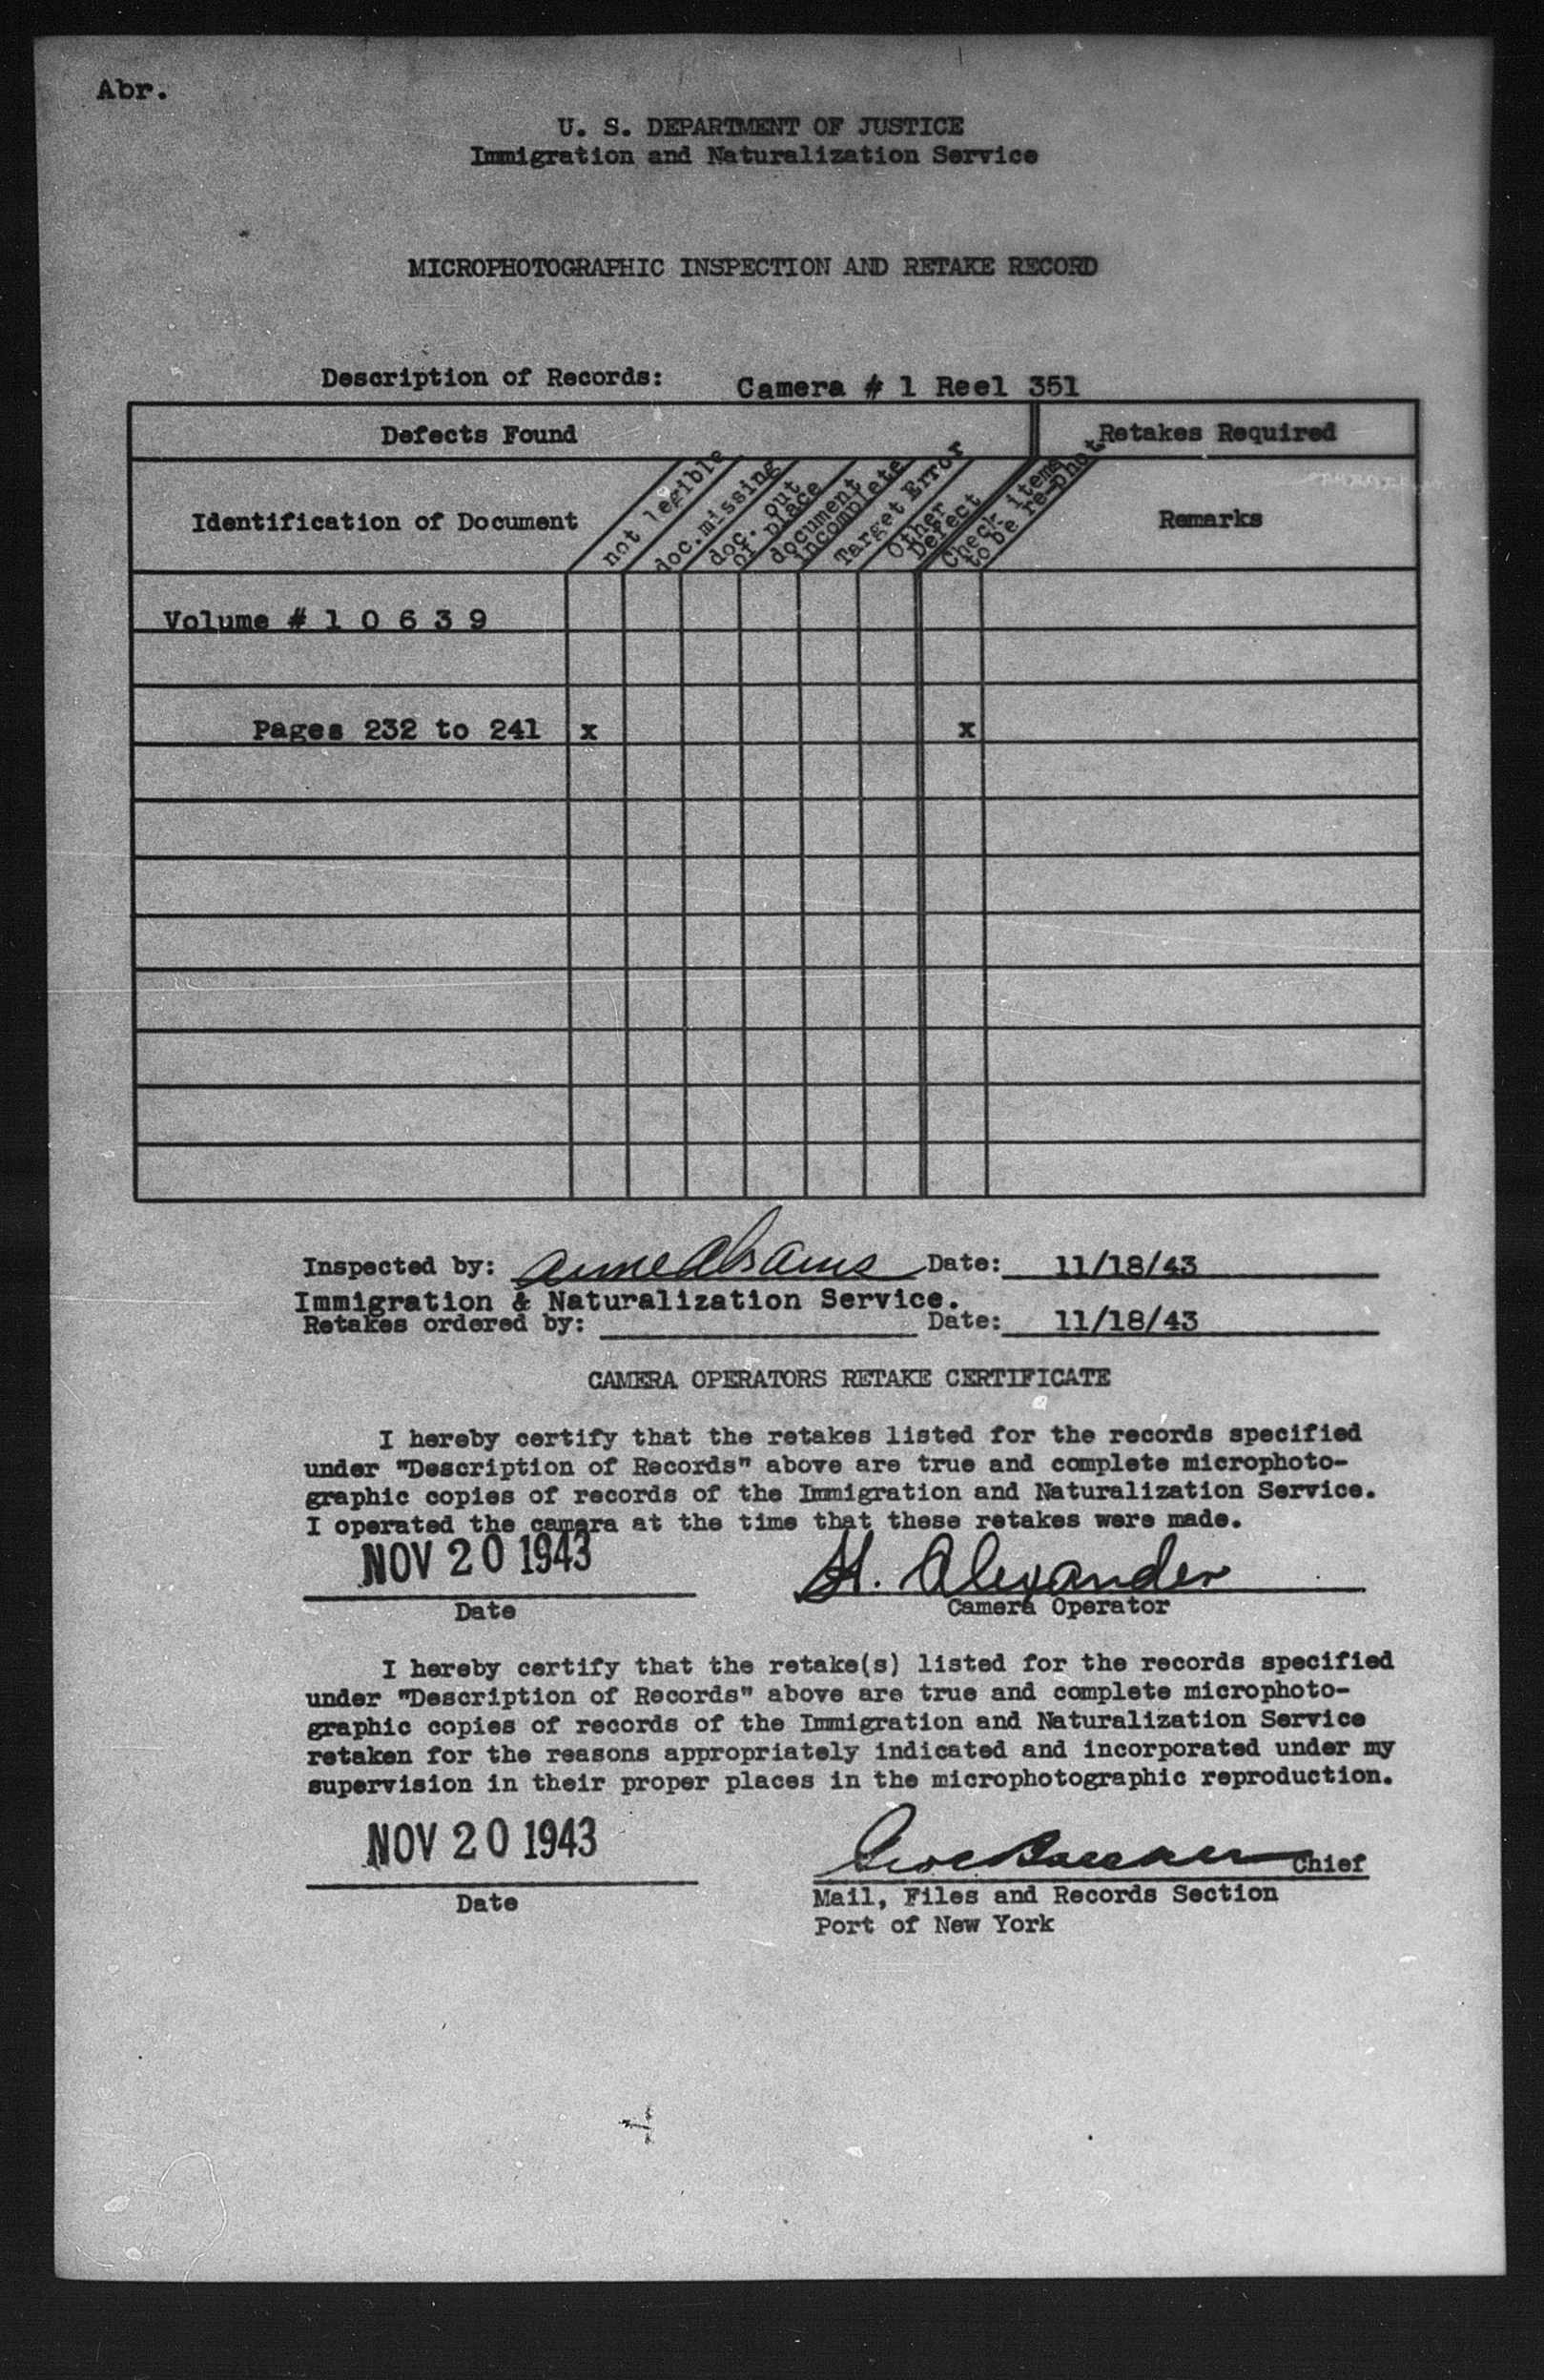 Abr.
U. S. DEPARTMENT OF JUSTICE
Immigration and Naturalization Service
MICROPHOTOGRAPHIC INSPECTION AND RETAKE RECORD
Description of Records: Camera # 1 Reel 351
Defects Found
Retakes Required
Identification of Document
not legible
doc. missing
doc. out
of place
document
incomplete
Target Error
Other
Defect
Check items
to be re-phot.
Remarks
Volume # 1 0 6 3 9
Pages 232 to 241 x x
Inspected by: Anne Abrams Date: 11/18/43
Immigration & Naturalization Service.
Retakes ordered by: Date: 11/18/43
CAMERA OPERATORS RETAKE CERTIFICATE
I hereby certify that the retakes listed for the records specified
under "Description of Records" above are true and complete microphoto-
graphic copies of records of the Immigration and Naturalization Service.
I operated the camera at the time that these retakes were made.
NOV 20 1943 H. Alexander
Date Camera Operator
I hereby certify that the retake(s) listed for the records specified
under "Description of Records" above are true and complete microphoto-
graphic copies of records of the Immigration and Naturalization Service
retaken for the reasons appropriately indicated and incorporated under my
supervision in their proper places in the microphotographic reproduction.
NOV 20 1943 Chief
Date
Mail, Files and Records Section
Port of New York